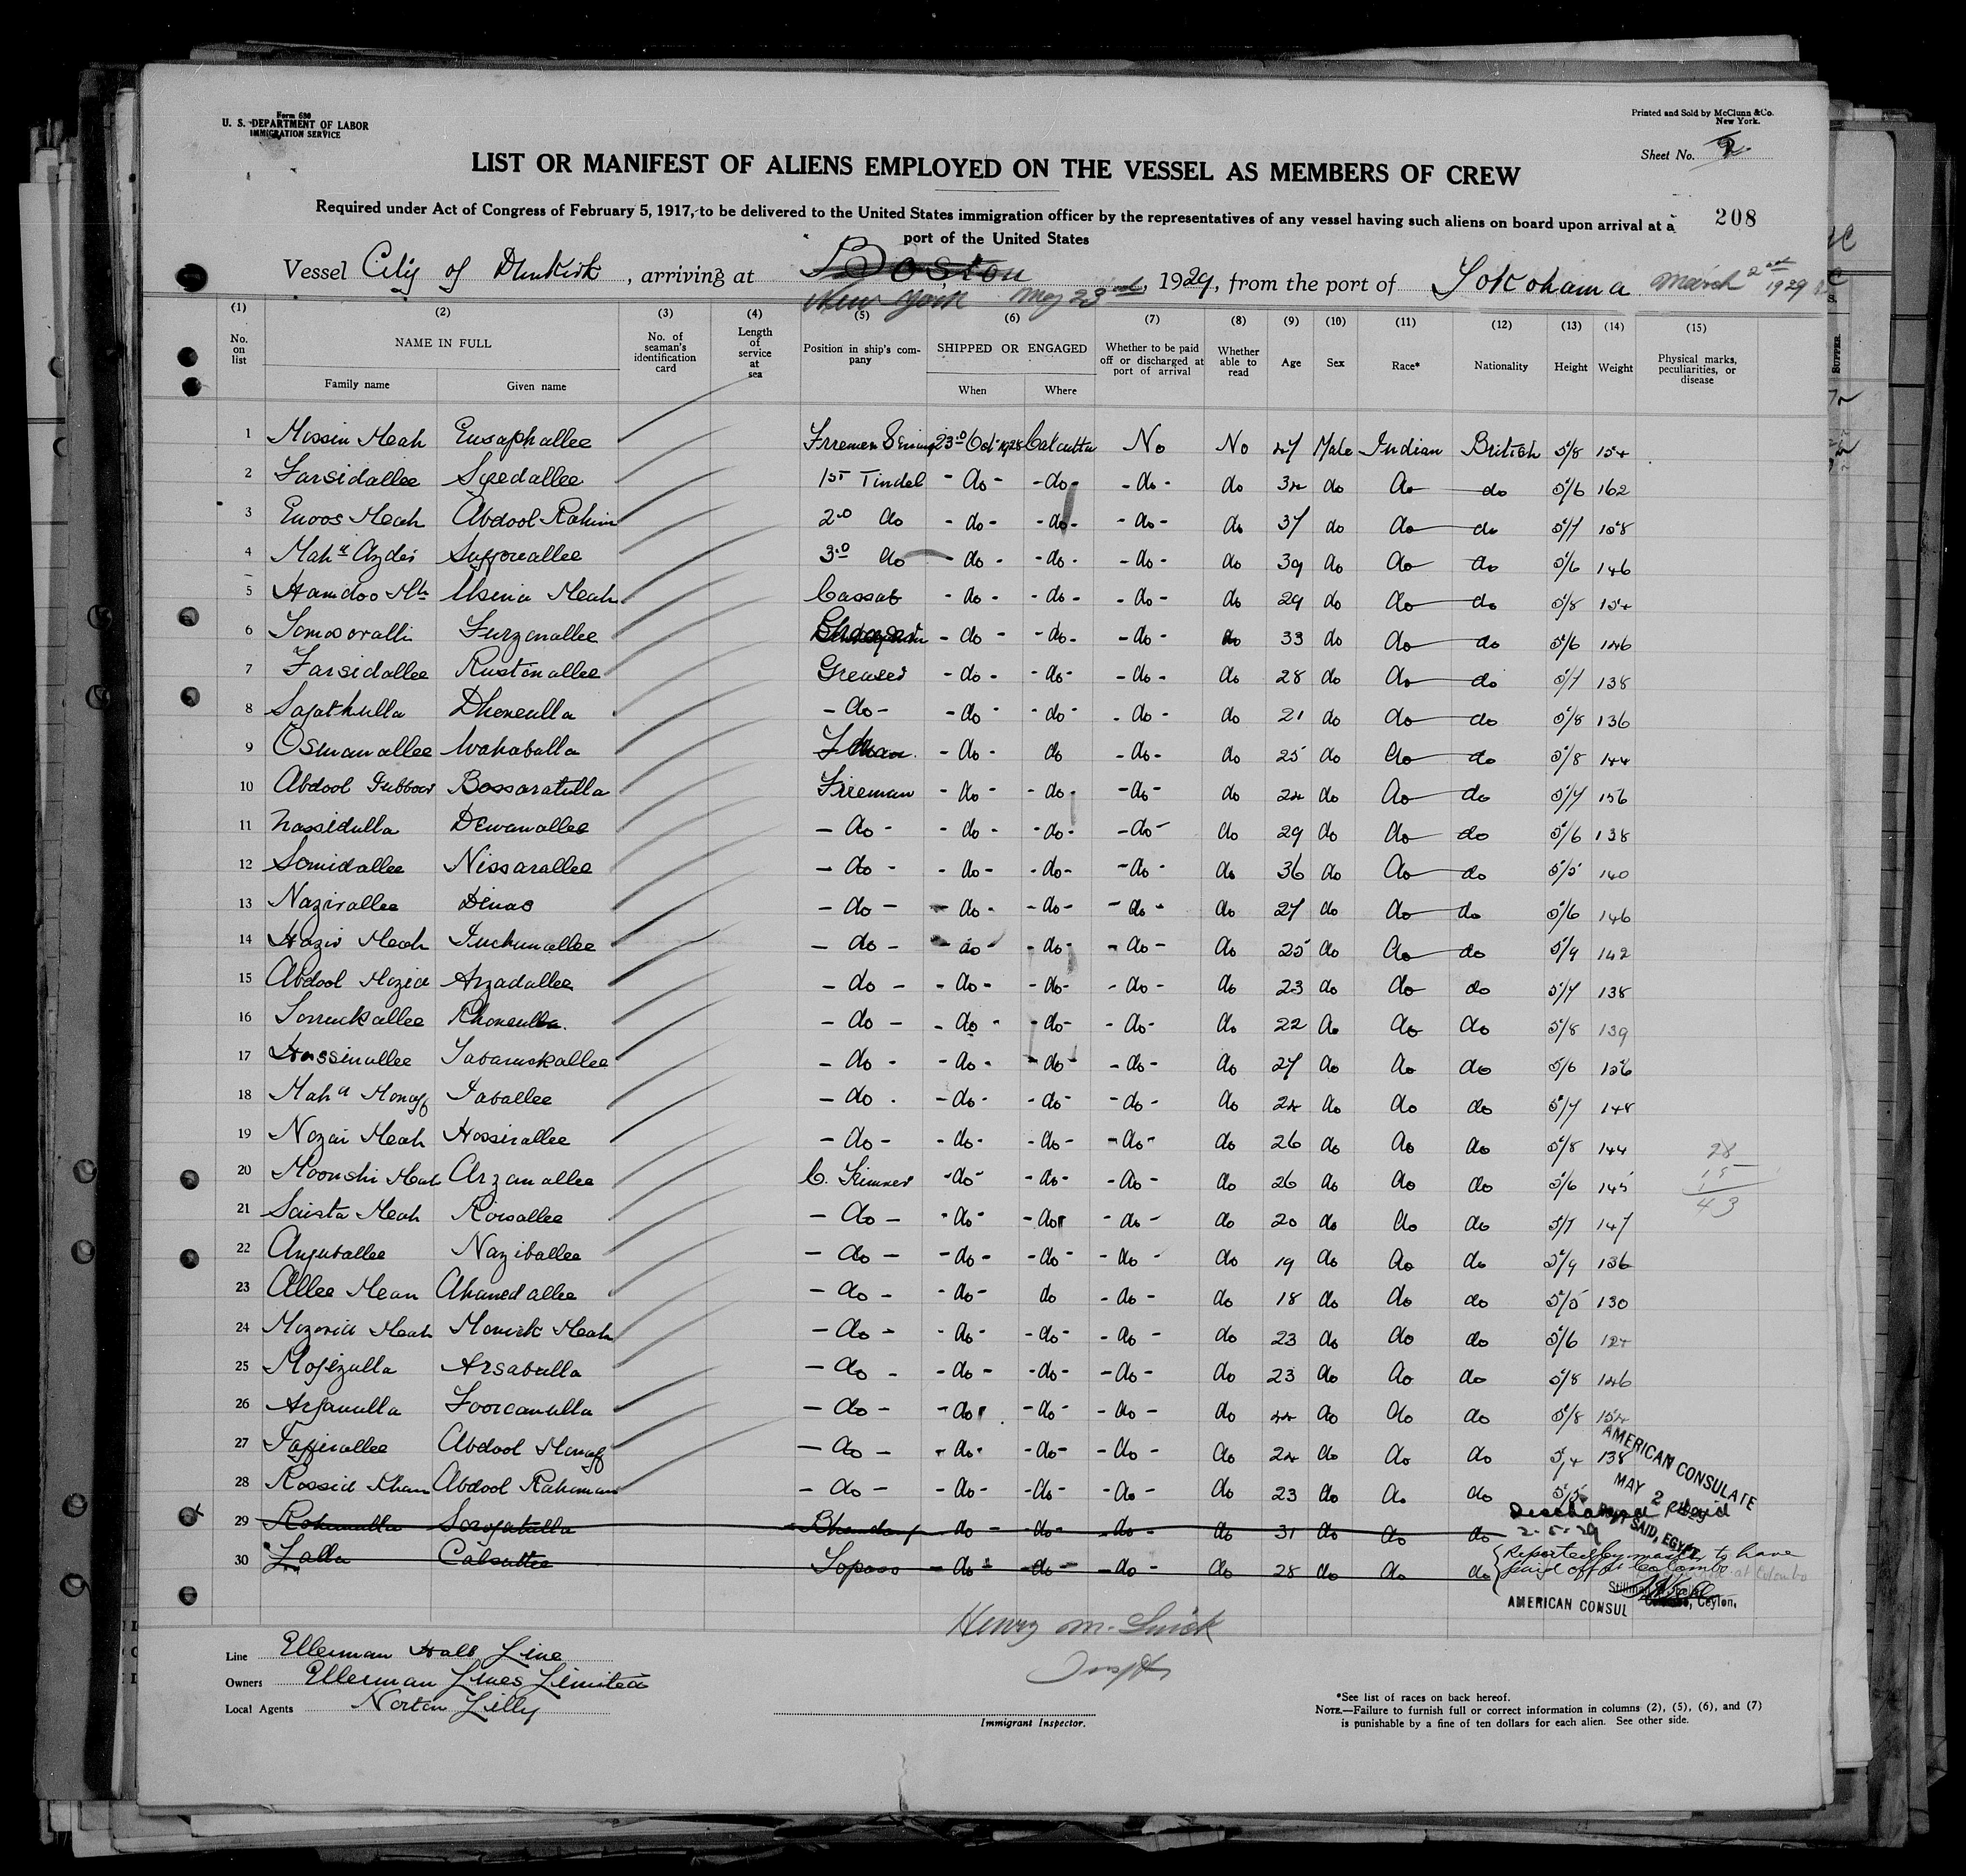 Form 680
U. S. DEPARTMENT OF LABOR
IMMIGRATION SERVICE
Printed and Sold by McClunn & Co.
New York.
Sheet No. 2.
LIST OR MANIFEST OF ALIENS EMPLOYED ON THE VESSEL AS MEMBERS OF CREW
Required under Act of Congress of February 5, 1917, to be delivered to the United States immigration officer by the representatives of any vessel having such aliens on board upon arrival at a
port of the United States
208
Vessel City of Dunkirk, arriving at Boston, 1929, from the port of Yokohama March 2nd 1929
New York May 23rd
(1) (2) (3) (4) (5) (6) (7) (8) (9) (10) (11) (12) (13) (14) (15)
No. on list NAME IN FULL Family name Given name No. of seaman's identification card Length of service at sea Position in ship's company SHIPPED OR ENGAGED When Where Whether to be paid off or discharged at port of arrival Whether able to read Age Sex Race* Nationality Height Weight Physical marks, peculiarities, or disease
1 Mossin Meah Eusaphallee Firemen Serang 23rd Oct 1928 Calcutta No No 47 Male Indian British 5/8 154
2 Farsidallee Syedallee 1st Tindel -do- -do- -do- do 34 do do do 5/6 162
3 Enoos Meah Abdool Rahim 2nd do -do- -do- -do- do 37 do do do 5/7 158
4 Mahd Azdei 3rd do -do- -do- -do- do 39 do do do 5/6 146
5 Hamdoo Meah Cassab -do- -do- -do- do 29 do do do 5/8 154
6 Furzanallee -do- -do- -do- do 33 do do do 5/6 146
7 Farsidallee Rustonallee Greaser -do- -do- -do- do 28 do do do 5/7 138
8 Sajathulla Dhoneulla -do- -do- -do- -do- do 21 do do do 5/8 136
9 Osmanallee Wahabulla -do- do -do- do 25 do do do 5/8 144
10 Abdool Gubboor Bossaratulla Fireman -do- -do- -do- do 24 do do do 5/7 156
11 Nassidulla Dewanallee -do- -do- -do- -do- do 29 do do do 5/6 138
12 Somidallee Nissarallee -do- -do- -do- -do- do 36 do do do 5/5 140
13 Nazirallee Denas -do- -do- -do- -do- do 27 do do do 5/6 146
14 Hazir Meah -do- -do- -do- -do- do 25 do do do 5/9 142
15 Abdool Mozid Arzadallee -do- -do- -do- -do- do 23 do do do 5/7 138
16 Rhoneulla. -do- -do- -do- -do- do 22 do do do 5/8 139
17 Hassinallee Tabaruckallee -do- -do- -do- -do- do 27 do do do 5/6 156
18 Mahd Monaff Taballee -do- -do- -do- -do- do 24 do do do 5/7 148
19 Nozai Meah Hossirallee -do- -do- -do- -do- do 26 do do do 5/8 144
20 Moonshi Meah Arzanallee C. Trimmer -do- -do- -do- do 26 do do do 5/6 145
21 Saista Meah Roisallee -do- -do- -do- -do- do 20 do do do 5/7 147
22 Anjuballee Naziballee -do- -do- -do- -do- do 19 do do do 5/9 136
23 Allee Mean Ahamedallee -do- -do- do -do- do 18 do do do 5/5 130
24 Mozorid Meah Monick Meah -do- -do- -do- -do- do 23 do do do 5/6 124
25 Mofizulla Arsabulla -do- -do- -do- -do- do 23 do do do 5/8 146
26 Arfanulla Foorcanulla -do- -do- -do- -do- do 44 do do do 5/8 154
27 Taffirallee Abdool Monaff -do- -do- -do- -do- do 24 do do do 5/4 138
28 Rossid Khan Abdool Rahaman -do- -do- -do- -do- do 23 do do do 5/5
29 Rohimulla Sorafatulla Bhandary -do- -do- -do- do 31 do do do
30 Lalla Calcutta Topass -do- -do- -do- do 28 do do do
28
15
43
AMERICAN CONSULATE
MAY 2 1929
PORT SAID, EGYPT
Discharged P. Said
2-5-29
Reported by master to have
paid off at Colombo
at Colombo
AMERICAN CONSUL Ceylon,
Henry M.
Insptr
Line Ellerman Hall Line
Owners Ellerman Lines Limited
Local Agents Norton Lilly
Immigrant Inspector.
*See list of races on back hereof.
NOTE.—Failure to furnish full or correct information in columns (2), (5), (6), and (7)
is punishable by a fine of ten dollars for each alien. See other side.